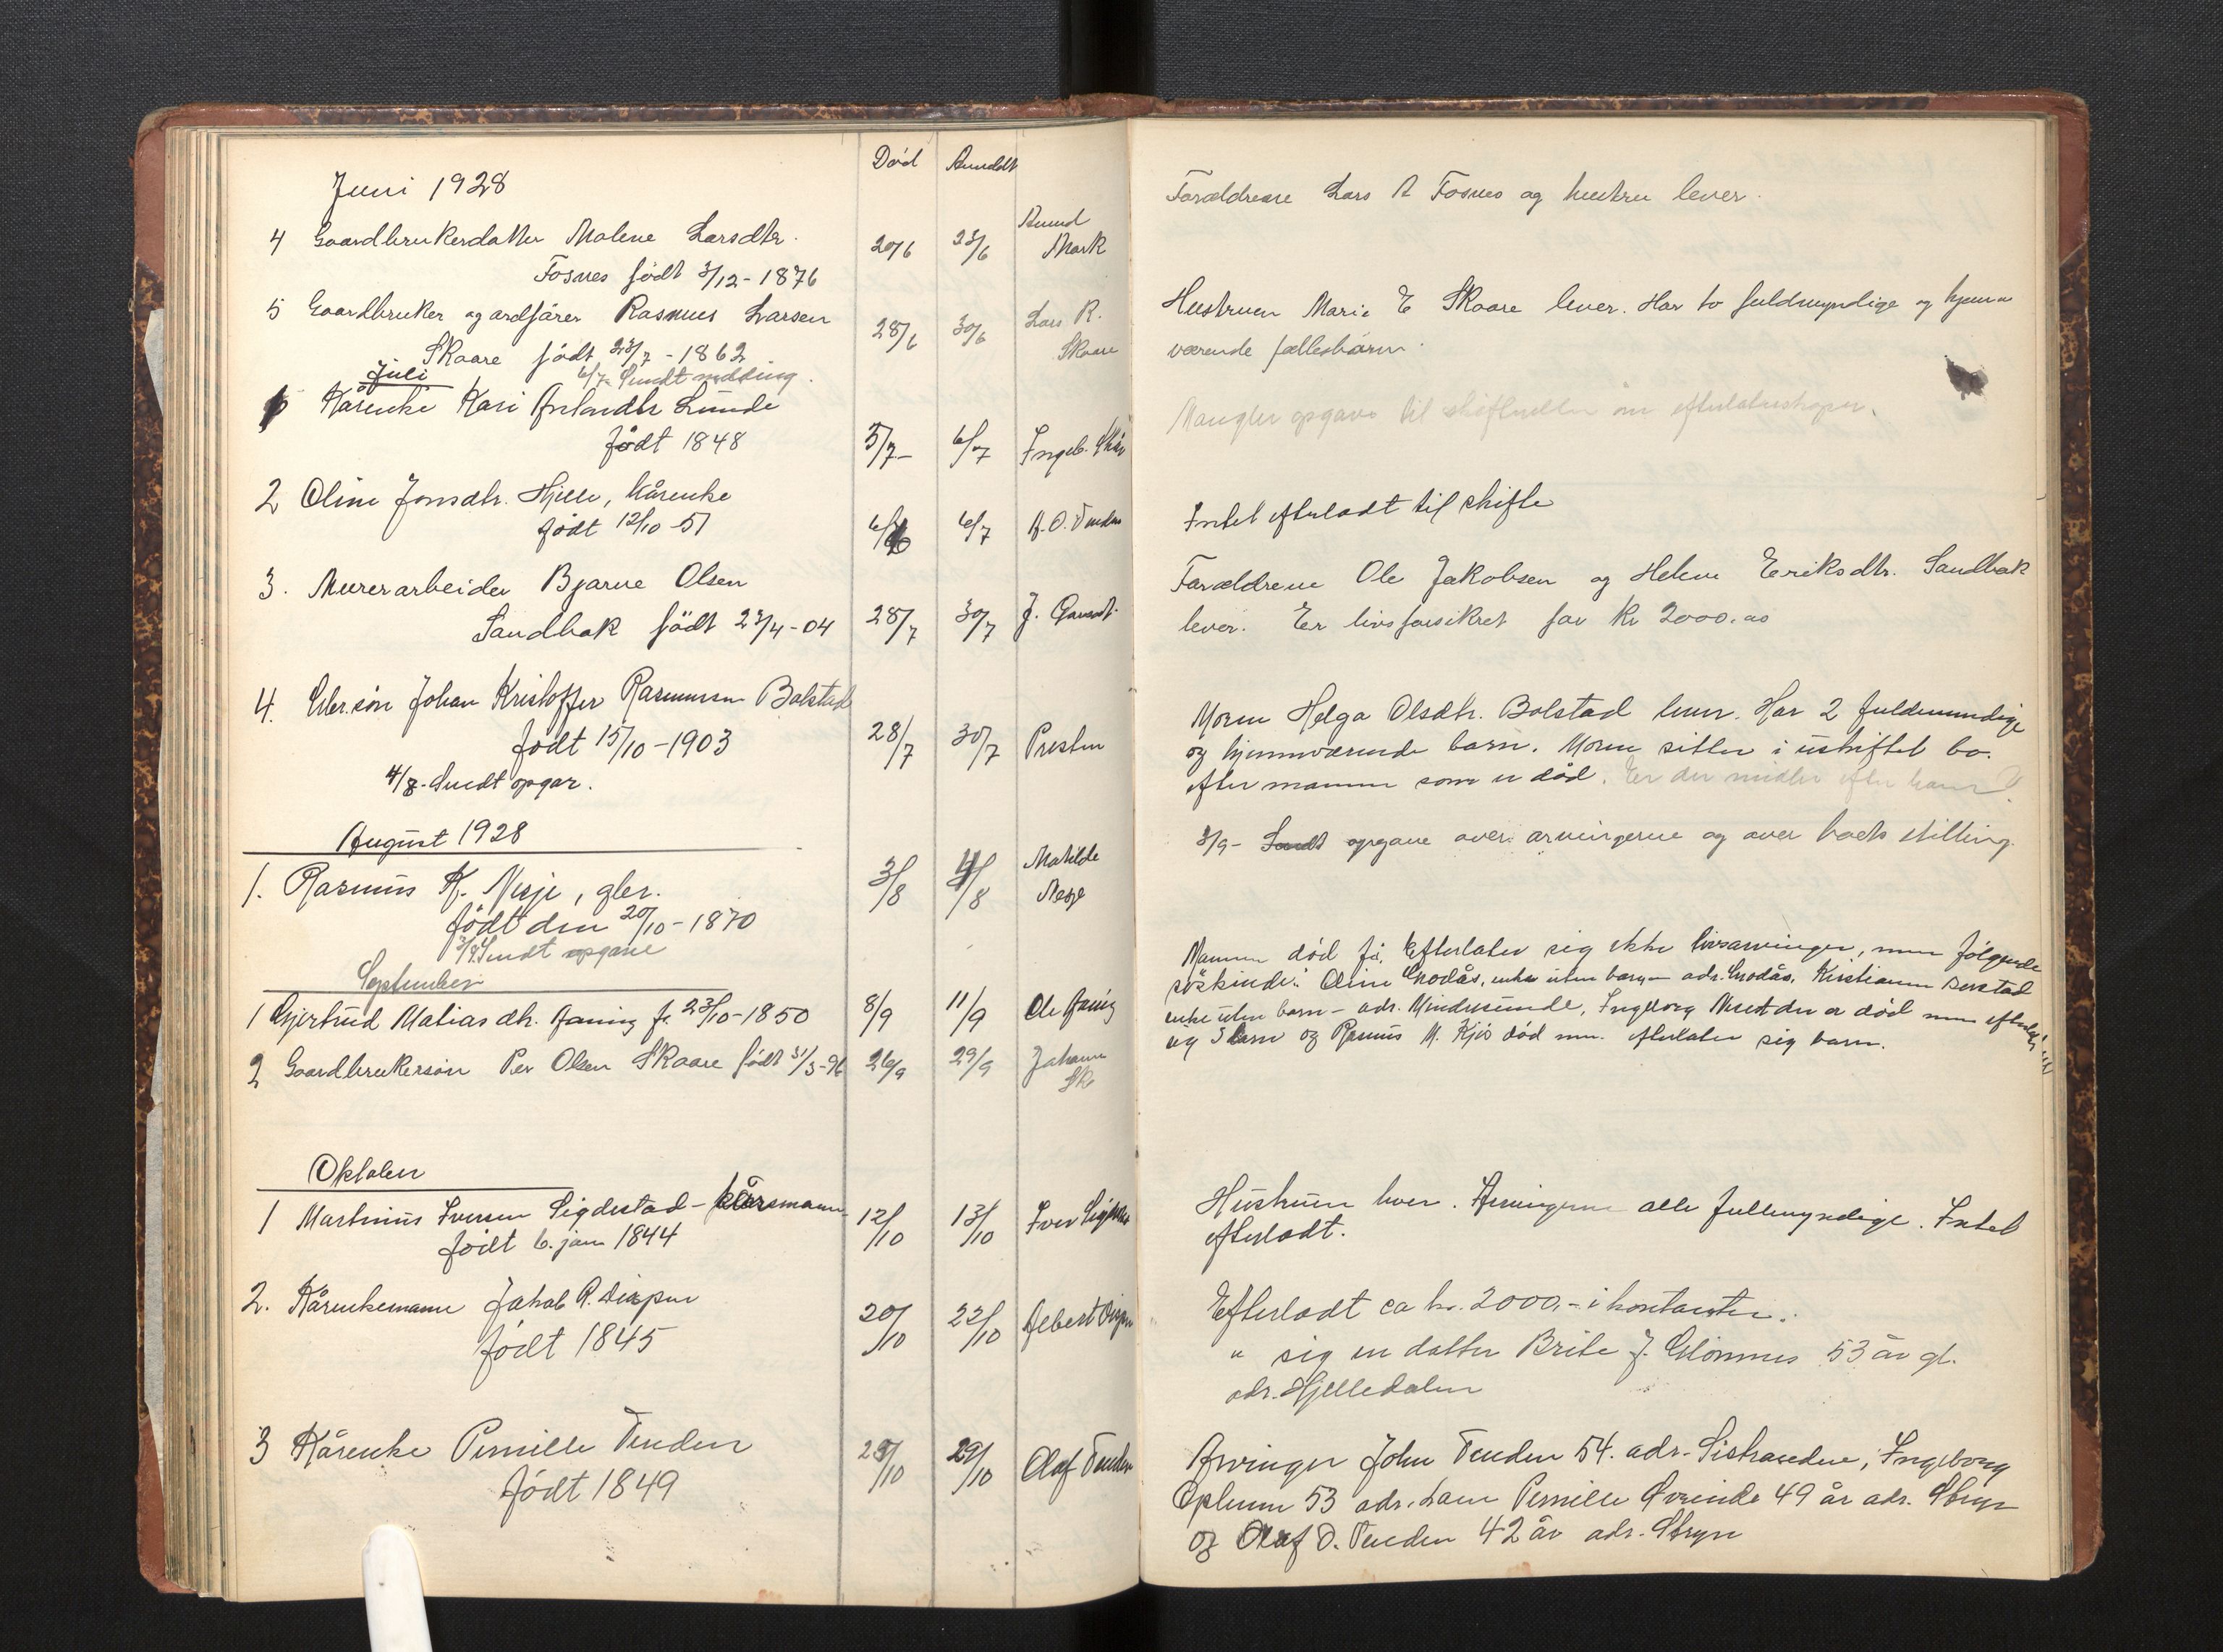 Død Anmeldt
Juni 1928
4 Gaardbrukerdatter Malene Larsdtr. 20/6 23/6 Anund Mark
Fosnes født 3/12-1876
5 Gaardbruker og ordfører Rasmus Larsen 28/6 30/6 Lars R. Skaare
Skaare født 23/7-1862
Juli 6/7 Sendt melding.
Kårenke Kari Lunde
født 1848 5/7- 6/7 Ingeb.
2 Oline Jonsdtr. Hjelle, kårenke
født 12/10-51 6/7 A. O. Tenden
3. Murerarbeider Bjarne Olsen
Sandbak født 23/4-04 28/7 30/7 J.
4. Gbr.søn Johan Kristoffer Rasmussen Bolstad
født 15/10-1903 28/7 30/7 Presten
4/8-Sendt opgav.
August 1928
1. Rasmus K. Nesje, gbr. 3/8 4/8 Matilde Nesje
født den 20/10-1870
3/9 Sendt opgave
September
1 Gjertrud Matiasdtr. Aaning f. 23/10-1850 8/9 11/9 Ole Aaning
2 Gaardbrukersøn Per Olsen Skaare født 31/3-96 26/9 29/9 Johann Sk
Oktober
1 Martinus Iversen Sigdestad - kårsmann 12/10 13/10 Iver
født 6. jan 1844
2. Kårenkemann Jakob R. Dispen
født 1845 20/10 22/10 Albert
3 Kårenke Pernille Tenden 25/10 29/10 Olaf Tenden
født 1849
Forældrene Lars A Fosnes og hustru lever.
Hustruen Marie E Skaare lever. Har to fuldmyndige og hjemme
værende fællesbørn.
Mangler opgave til skifteretten om efterlatenskaper.
Intet efterladt til skifte
Forældrene Ole Jakobsen og Helene Eriksdtr. Sandbak
lever. Er livsforsikret for kr 2000.00
Moren Helga Olsdtr. Bolstad lever. Har 2 fuldmyndige
og hjemmværende barn. Moren sitter i uskiftet bo
efter mannen som er død. Er der midler efter ham?
3/9- Sendt opgave over arvingerne og over boets stilling.
Mannen død før. Efterlater sig ikke livsarvinger, men følgende
søskinde: Oline Grodås, enke uten barn - adr. Grodås, Kristianne
enke uten barn - adr. Mindresunde, Ingeborg der er død men efterlater
sig 3 barn og Rasmus M. Kjøs død men efterlater sig barn.
Hustruen lever. Arvingerne alle fullmyndige. Intet
efterladt.
Efterladt ca kr. 2000,- i kontanter.
" sig en datter Brite J. Glomnes 53 år gl.
adr. Hjelledalen
Arvinger John Tenden 54. adr. , Ingeborg
Opheim 53 adr. Pernille Øvrinde 49 år adr. Stryn
og Olaf O. Tenden 42 år adr. Stryn